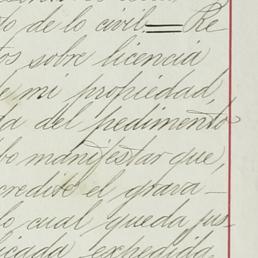 lo de lo civil.═Re
tos sobre licencia
e mi propiedad,
da del pedimento
be manifestar que,
credite el grava-
lo cual queda jus-
licada expedida